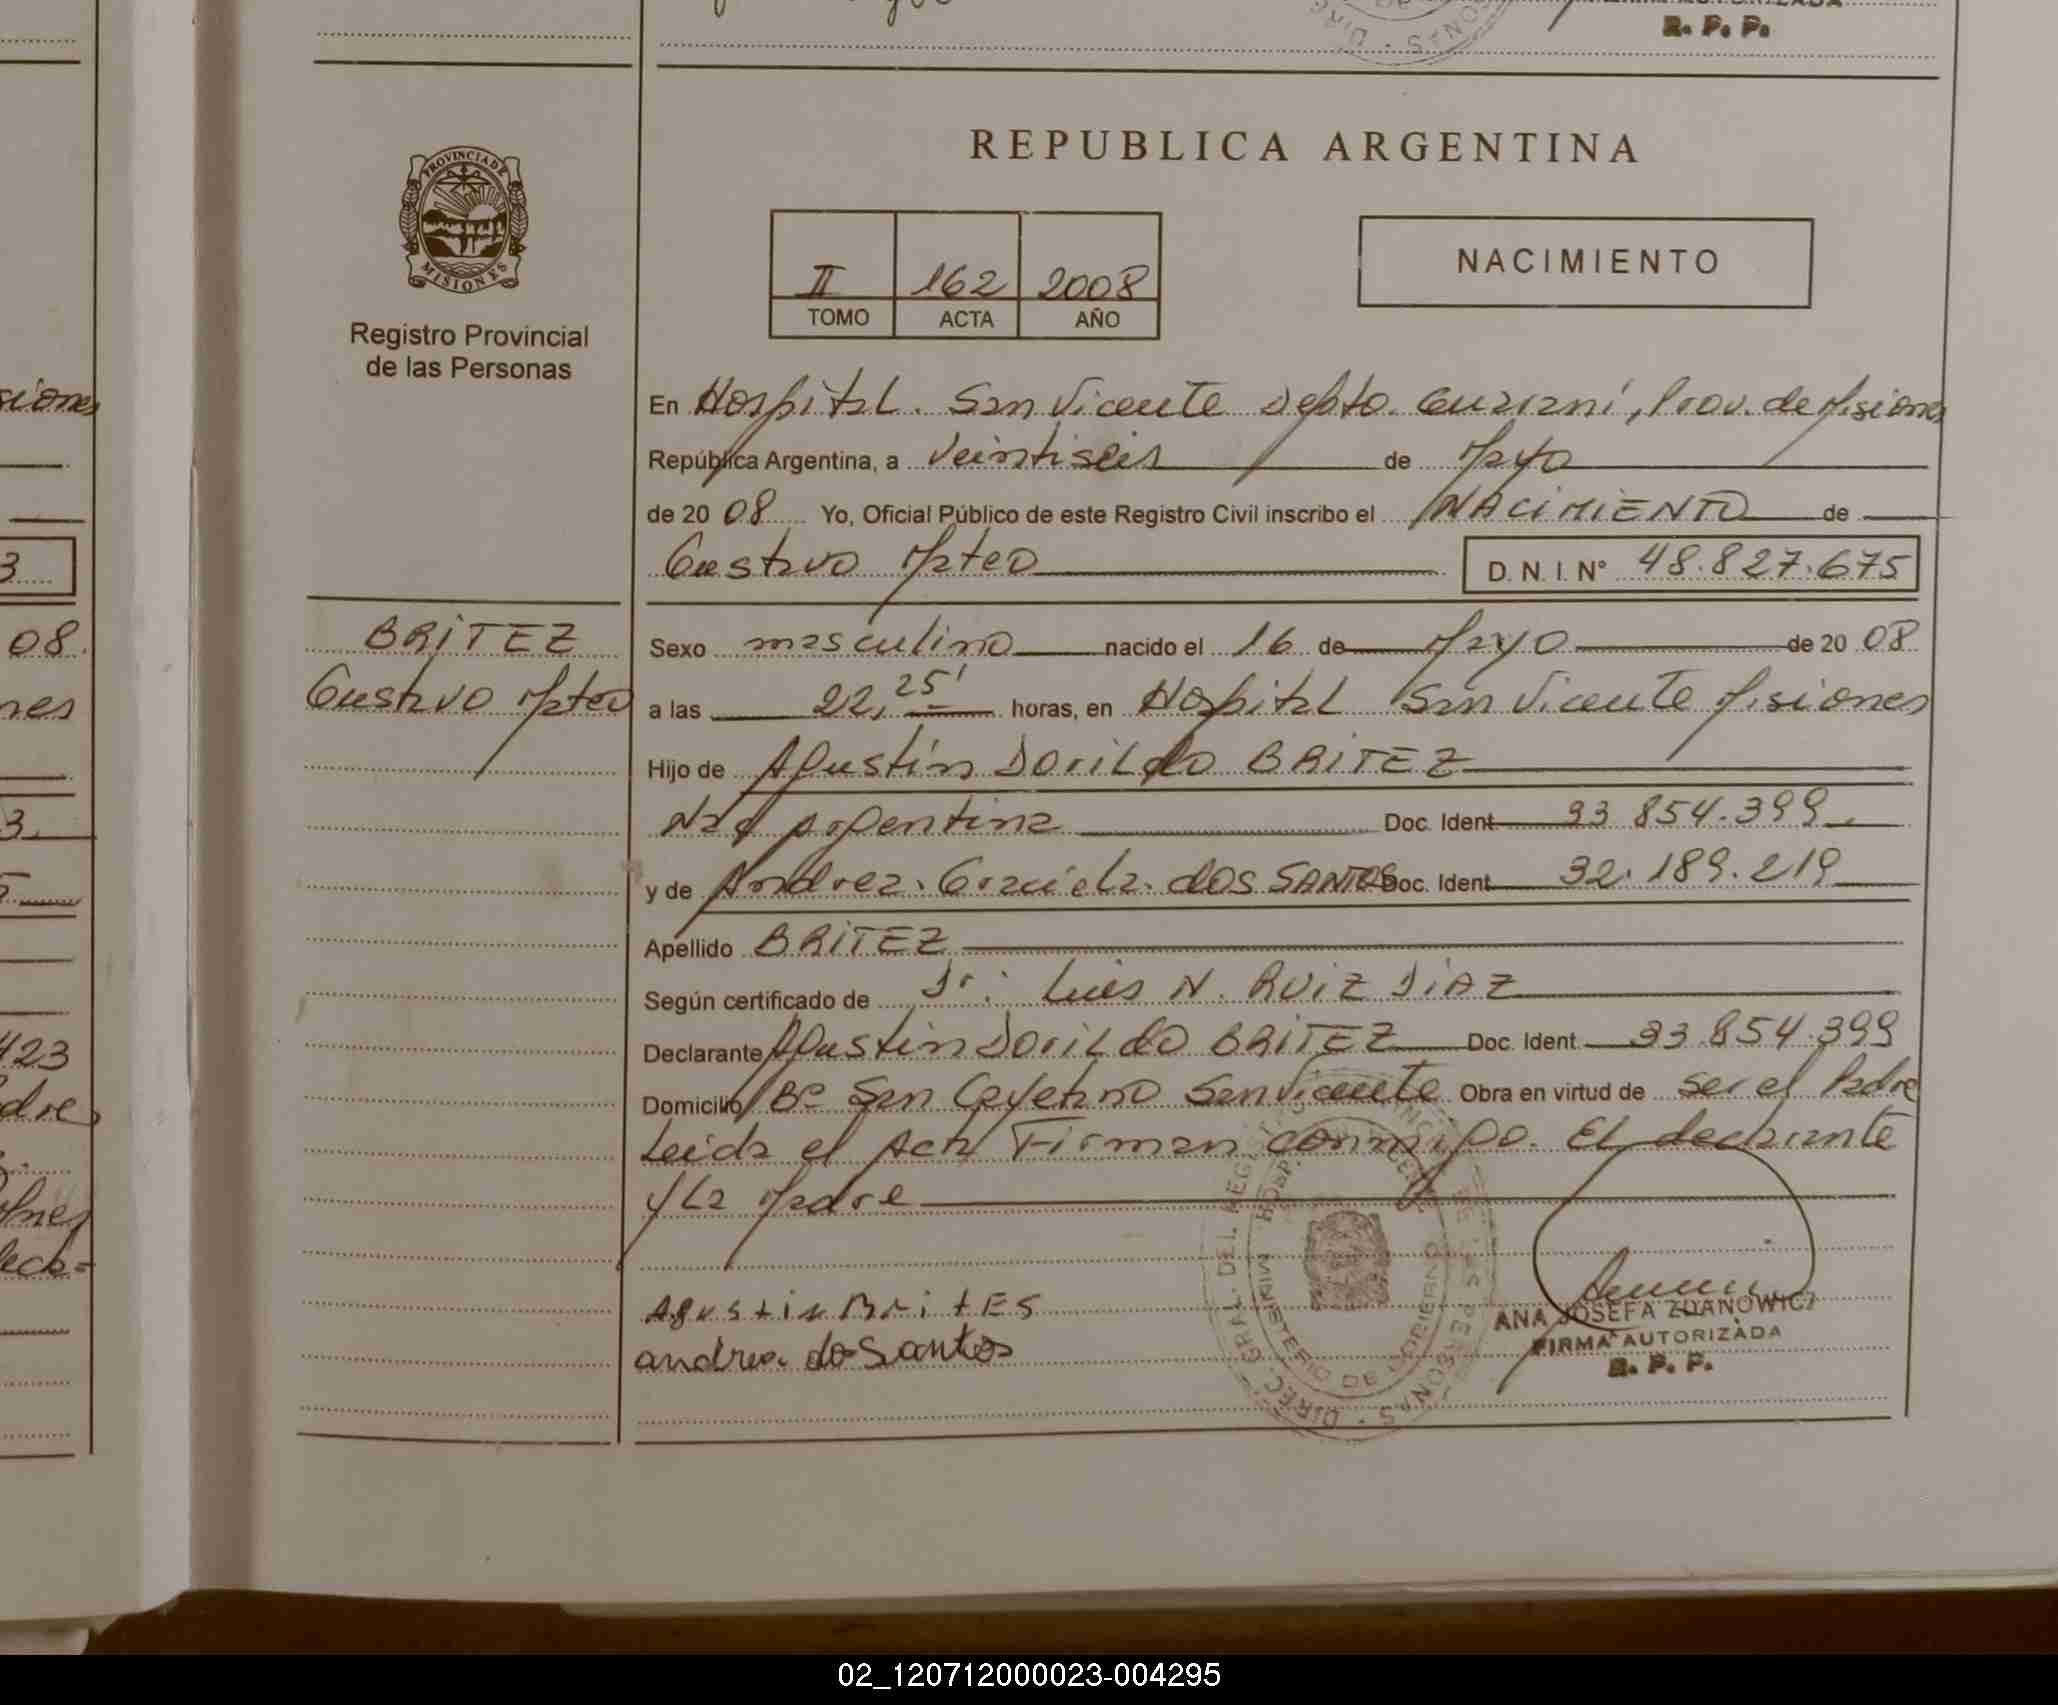 R. P. P.
PROVINCIA DE
MISIONES
Registro Provincial
de las Personas
REPUBLICA ARGENTINA
II 162 2008
TOMO ACTA AÑO
NACIMIENTO
En Hospital. San Vicente Depto. Guarani, Prov. de Misiones
República Argentina, a veintiseis de Mayo
de 20 08 Yo, Oficial Público de este Registro Civil inscribo el NACIMIENTO de
Gustavo Mateo D. N. I. Nº 48.827.675
BRITEZ
Gustavo Mateo
Sexo masculino nacido el 16 de Mayo de 20 08
a las 22,25' horas, en Hospital San Vicente Misiones
Hijo de Agustín Dorildo BRITEZ
Nac Argentina Doc. Ident 33 854.399
y de Andrea. Graciela. dos SANTOS Doc. Ident 32.189.219
Apellido BRITEZ
Según certificado de Dr: Luis N. RUIZ DIAZ
Declarante Agustin Dorildo BRITEZ Doc. Ident 33.854.399
Domicilio Bº San Cayetano San Vicente Obra en virtud de ser el Padre
Leida el Acta Firman conmigo. El declarante
y La Madre
Agustin BritES
andrea. dos Santos
DIREC. GRAL. DEL REGISTRO DE LAS PERSONAS
MINISTERIO DE GOBIERNO
ANA JOSEFA ZDANOWICZ
FIRMA AUTORIZADA
R. P. P.
siones
3
08.
nes
3.
423
dres
02_120712000023-004295